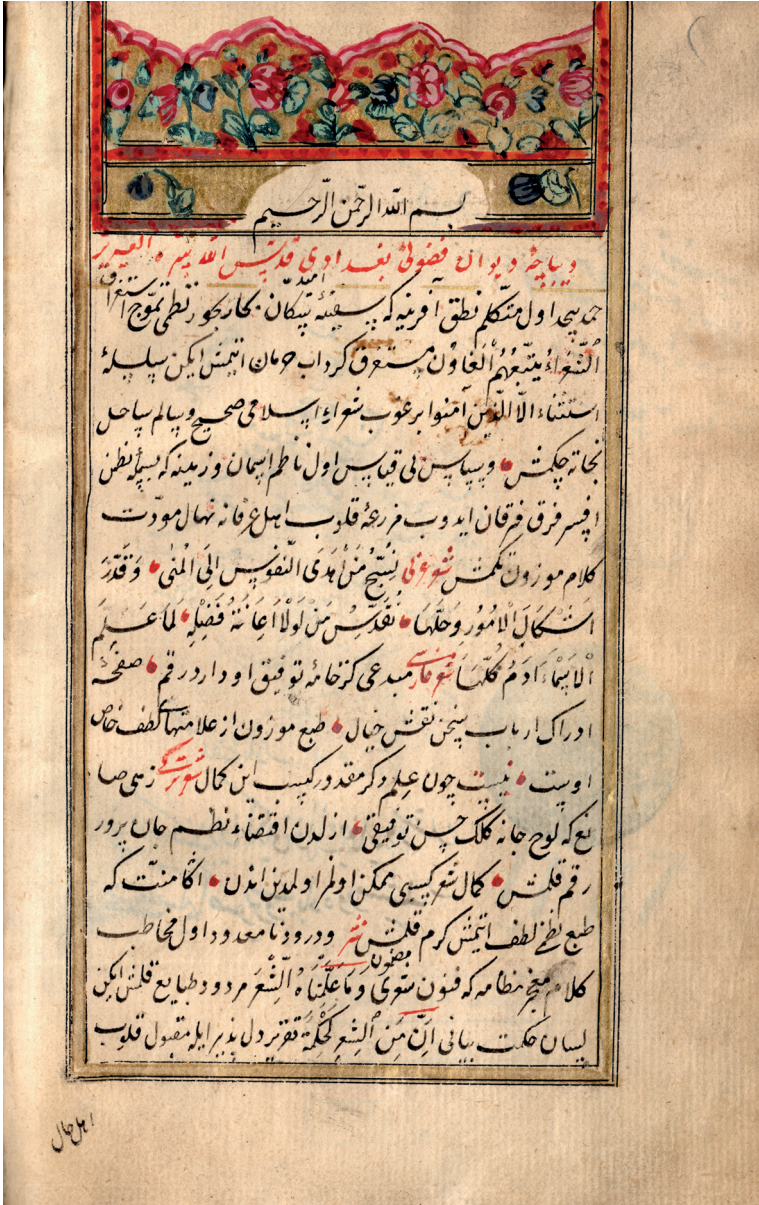 بسم الله الرحمن الرحیم
دیباچهٔ دیوان فضولیٔ بغدادی قدس الله سره العزیز
حمد بیحد اول متکلم نطق آفرینه که سفینهٔ امید سکان بحار بحور نظمی تموج استغراق
اَلشُّعَرَاءُ یَتَّبِعُهُمُ الْغَاوُن مستغرق کرداب حرمان اتیمش ایکن سلسلهٔ
استثناء الّا الّذین آمنوا برله غرق شعراء اسلامی صحیح و سالم ساحل
نجاته چکمش و سپاس بی قیاس اول ناظم اسمان و زمینه که
افسر فرق فرقان ایدوب مزرعهٔ قلوب اهل عرفانه نهال مودّت
کلام موزون تکمش شعر عربی نُسَبِّحُ مَنْ اَهْدَی النُّفُوس اِلَی الْمُنٰی وَ قَدَّرَ
اَشْکَالَ الْاُمُورِ وَحَلَّهَا نُقَدِّسُ مَنْ لَوْلَا اِعَانَةُ فَضْلِهِ لَمَا عَلَّمَ
الْاَسْمَاءَ اٰدَمَ کُلَّهَا شعر فارسی مبدعی کز خامهٔ توفیق او دارد رقم صفحهٔ
ادراک ارباب سخن نقش خیال طبع موزون از علامتهای لطف خاص
اوست نیست چون علم دکر مقدور کسب این کمال شعر ترکی زهی صا
نع که لوح جانه کلک حسن توفیقی ازلدن اقتضاء نظم جان پرور
رقم قلمش کمال شعر کسبی ممکن اولمز اولمدین اندن اکا منّت که
طبع نظم لطف اتیمش کرم قلمش نثر و درود نامعدود اول مخاطب
کلام معجز نظامه که فنون شعری مضمون و مَا عَلَّمْنَاهُ الشِّعْرَ مردود طبایع قلمش ایکن
لسان حکمت بیانی اِنَّ مِنَ الشِّعْرِ لَحِکْمَةً تقریر دل پذیر ایله مقبول قلوب
اهل حال